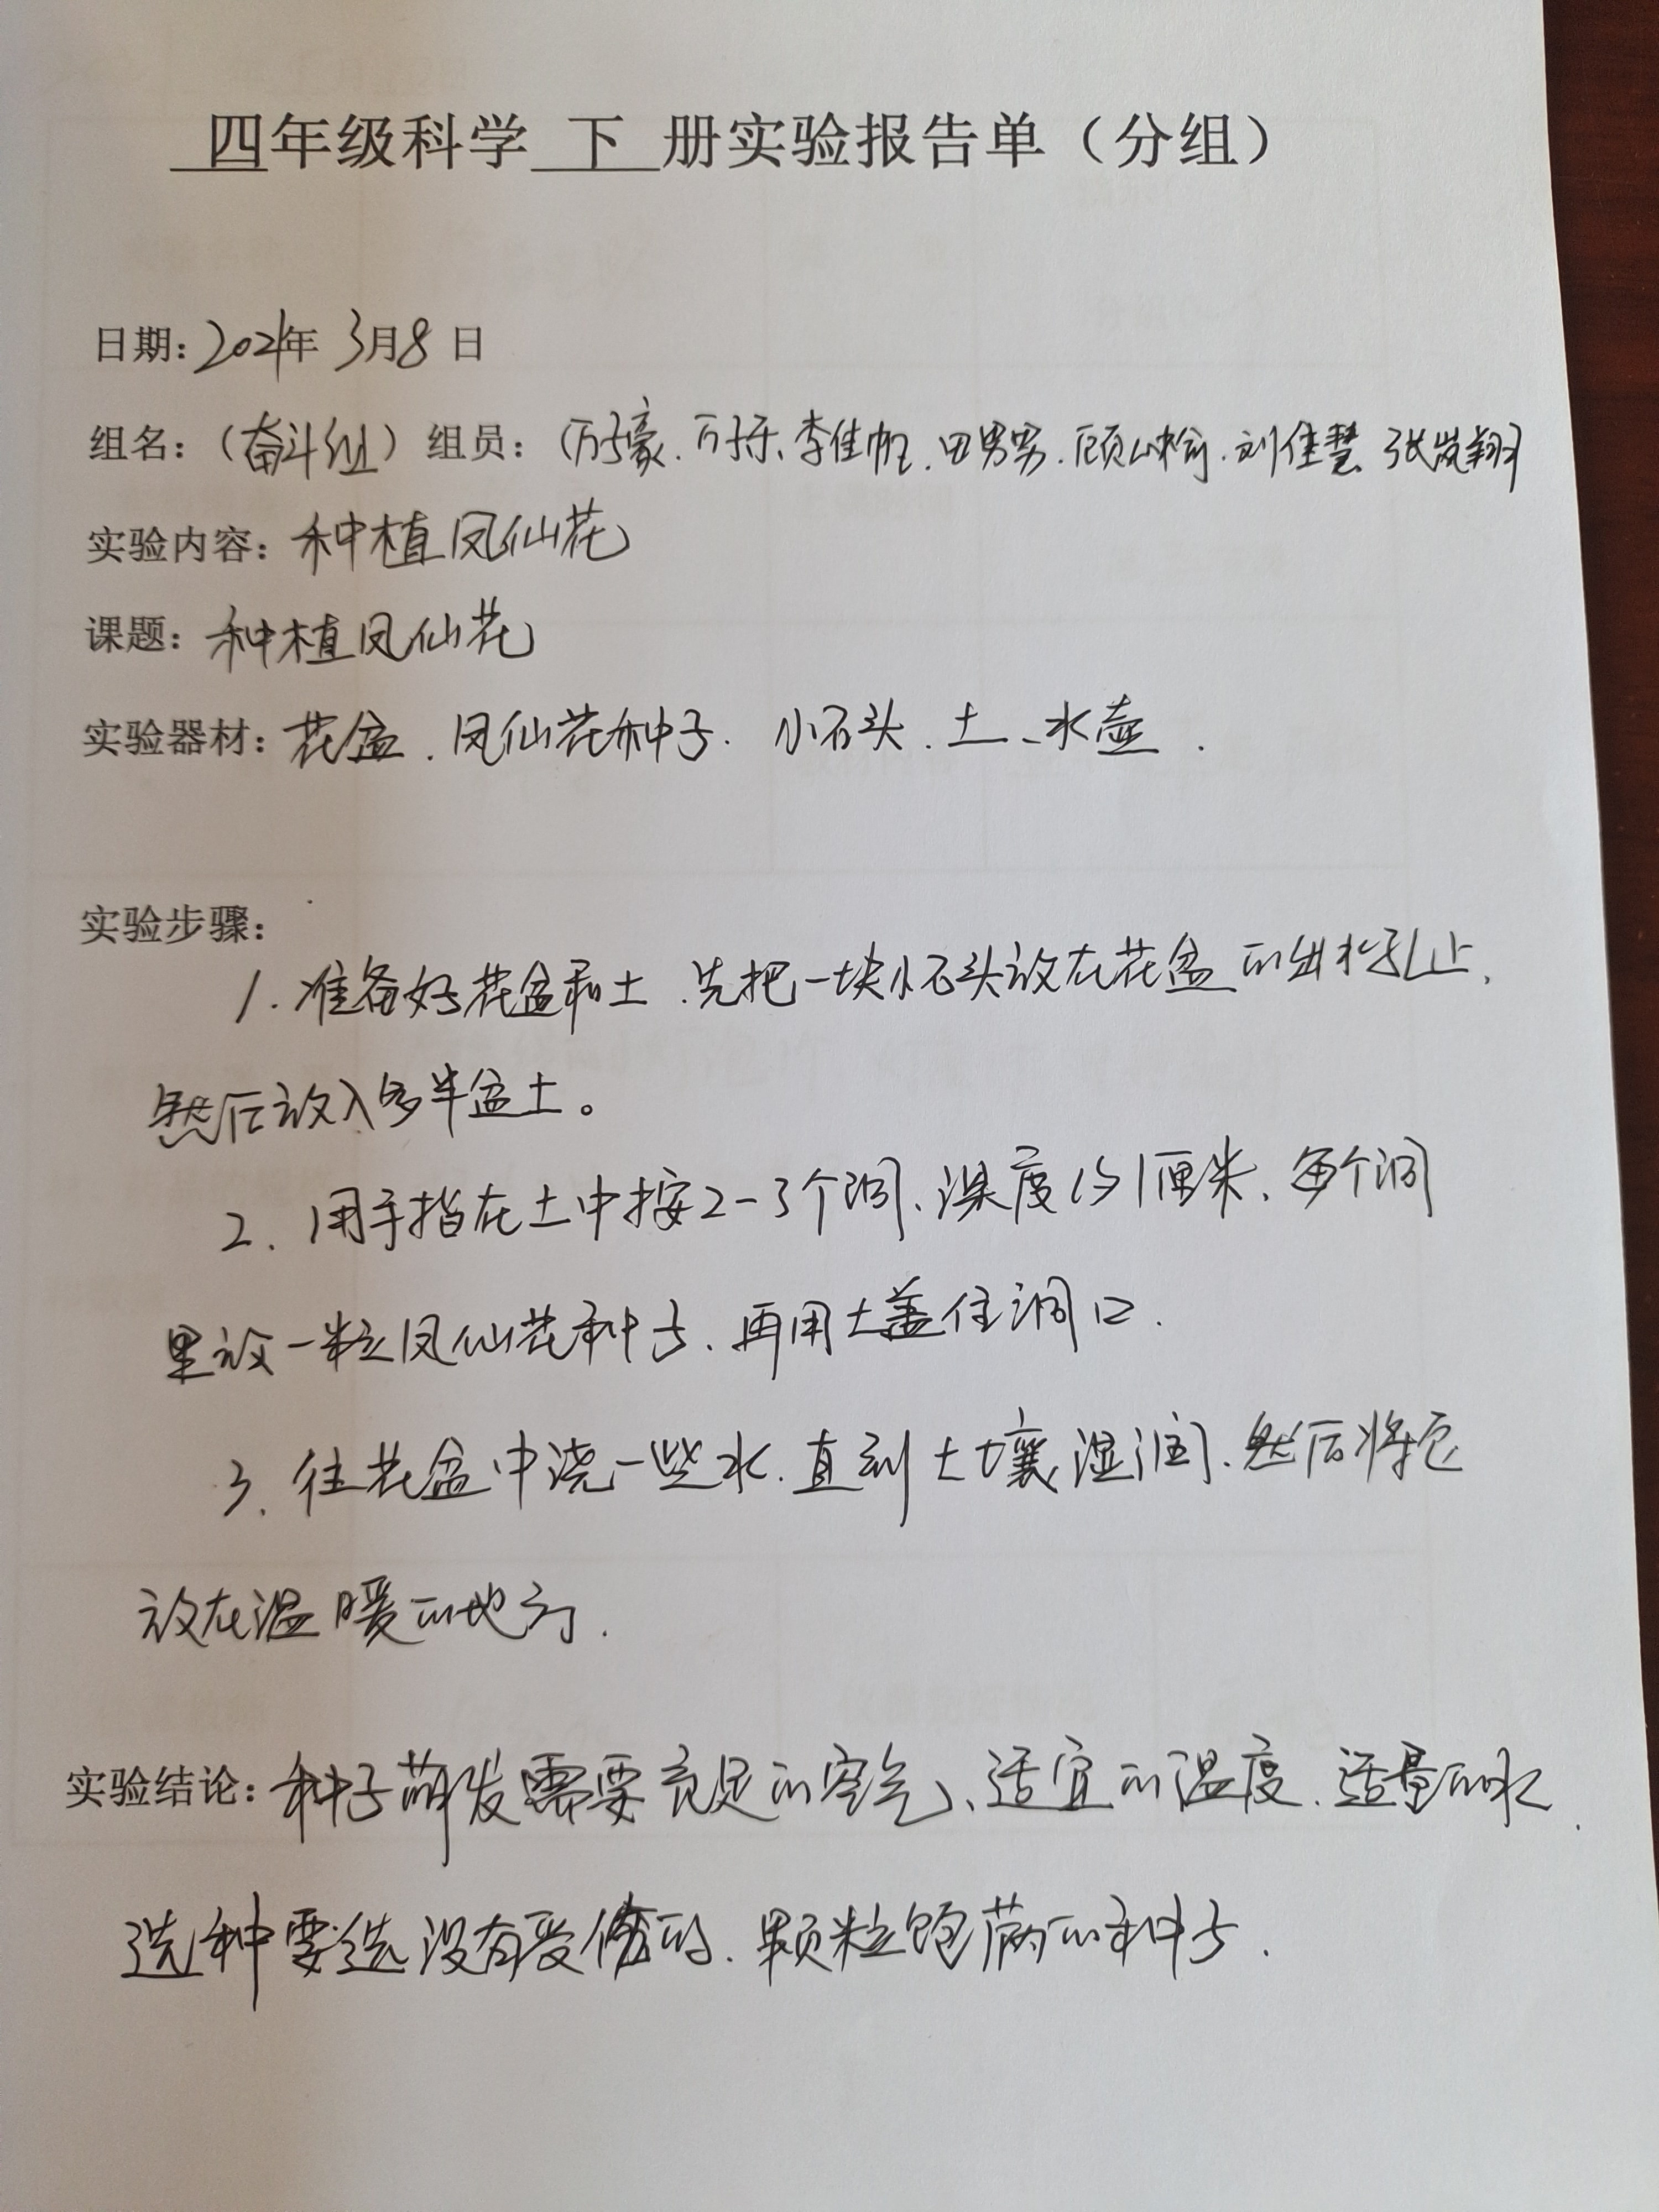 四年级科学 下 册实验报告单（分组）
日期：2021年 3月8 日
组名：（奋斗组）组员：（万子豪、万子乐、李佳帆、田男男、顾、刘佳慧、张岚翔
实验内容：种植凤仙花
课题：种植凤仙花
实验器材：花盆、凤仙花种子、小石头、土、水壶.
实验步骤：
1. 准备好花盆和土、先把一块小石头放在花盆的出水孔上、
然后放入多半盆土。
2. 用手指在土中按2-3个洞、深度约1厘米、每个洞
里放一粒凤仙花种子、再用土盖住洞口.
3. 往花盆中浇一些水、直到土壤湿润、然后将它
放在温暖的地方.
实验结论：种子萌发需要充足的空气、适宜的温度、适量的水.
选种要选没有受伤的、颗粒饱满的种子.